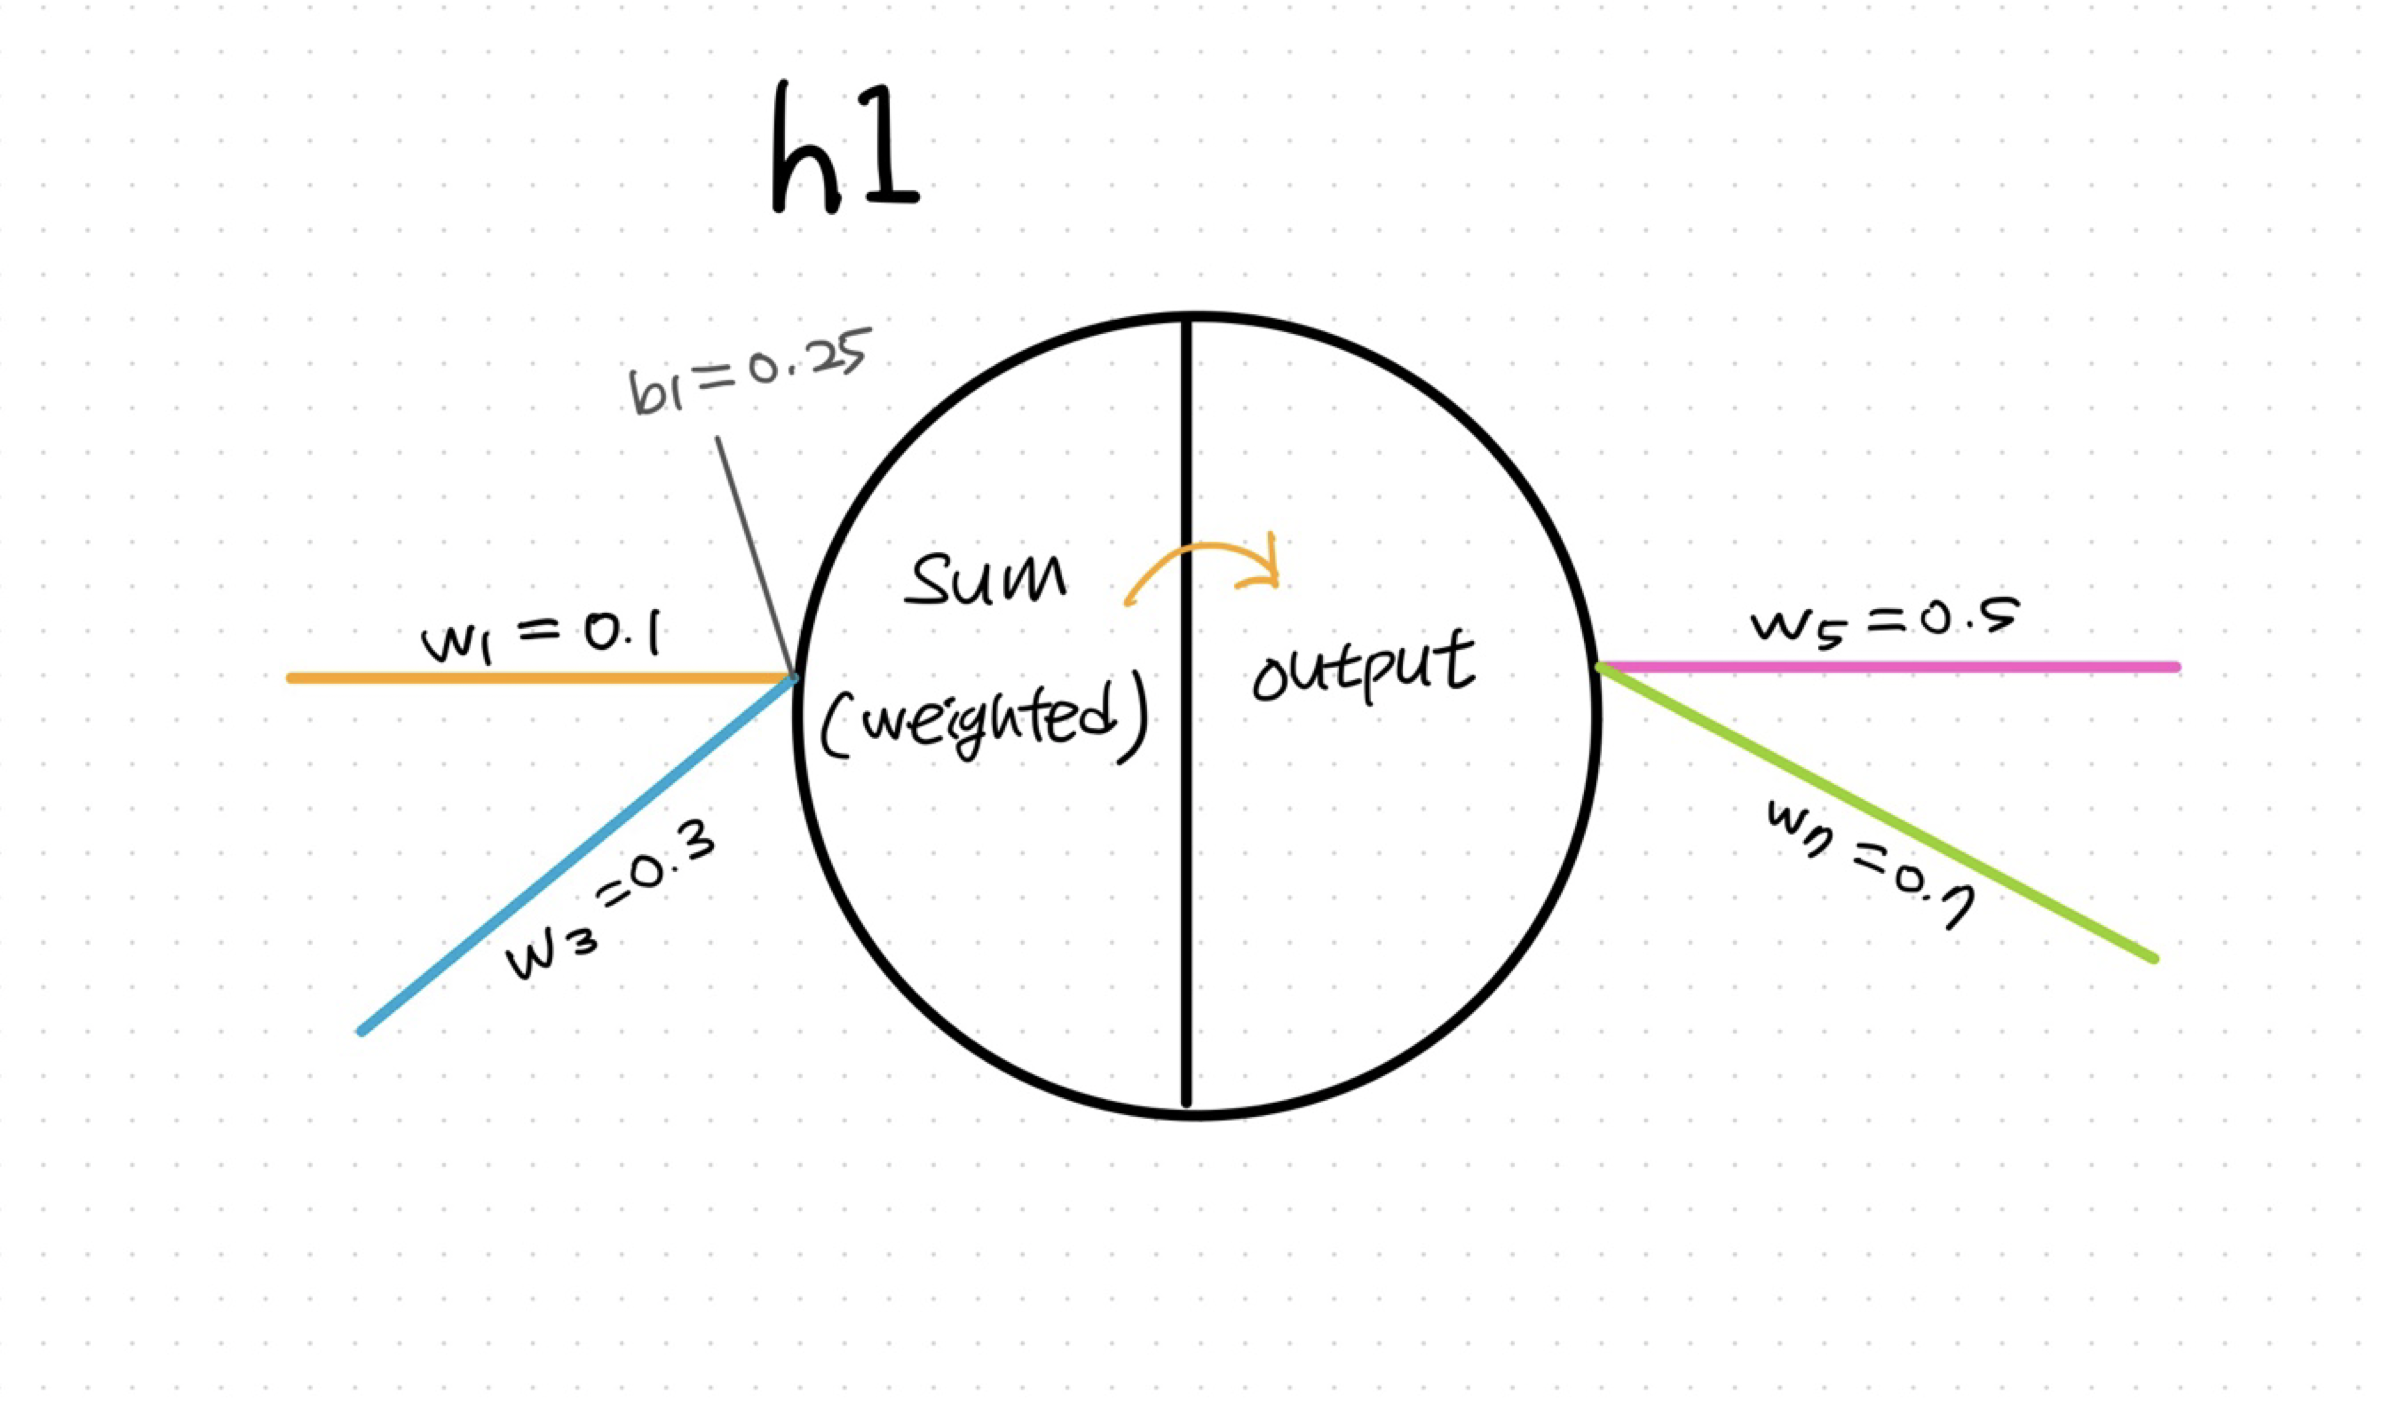 h1
b1=0.25
w1=0.1
sum
(weighted)
output
w3=0.3
w5=0.5
w7=0.7